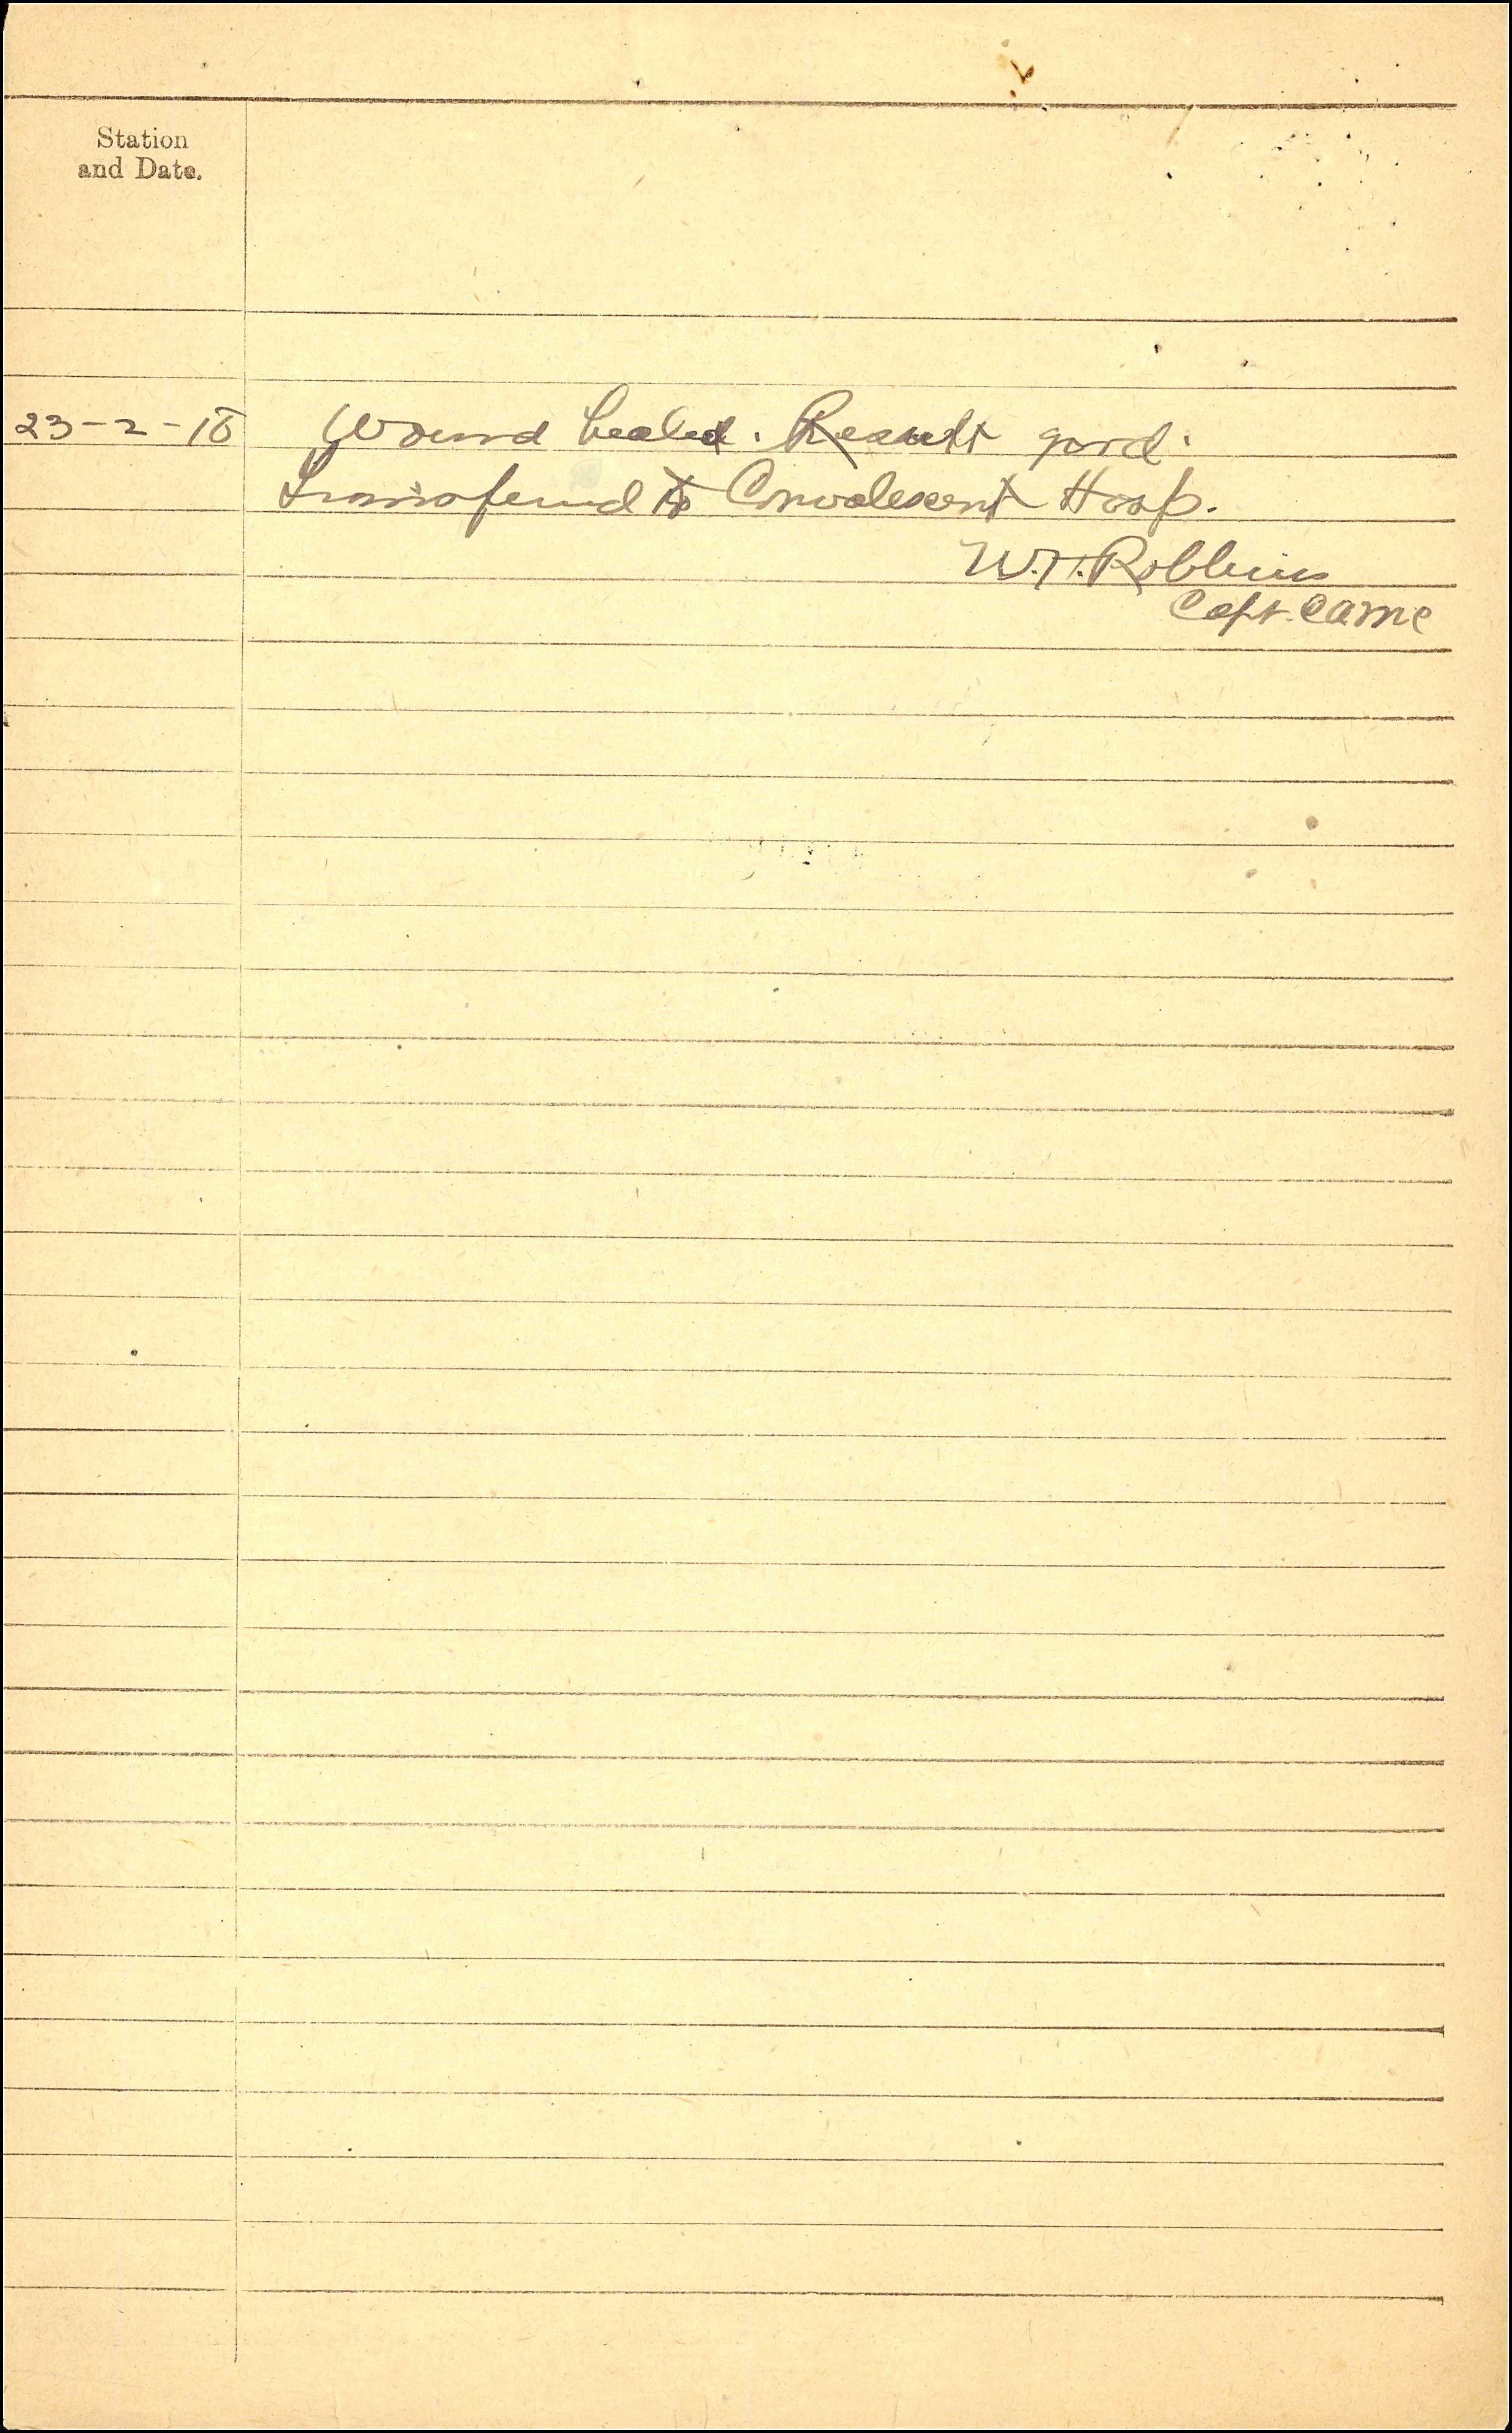 Station
and Date.
23-2-18 Wound healed. Result good.
Transferred to Convalescent Hosp.
W.H. Robbins
Capt. CAMC